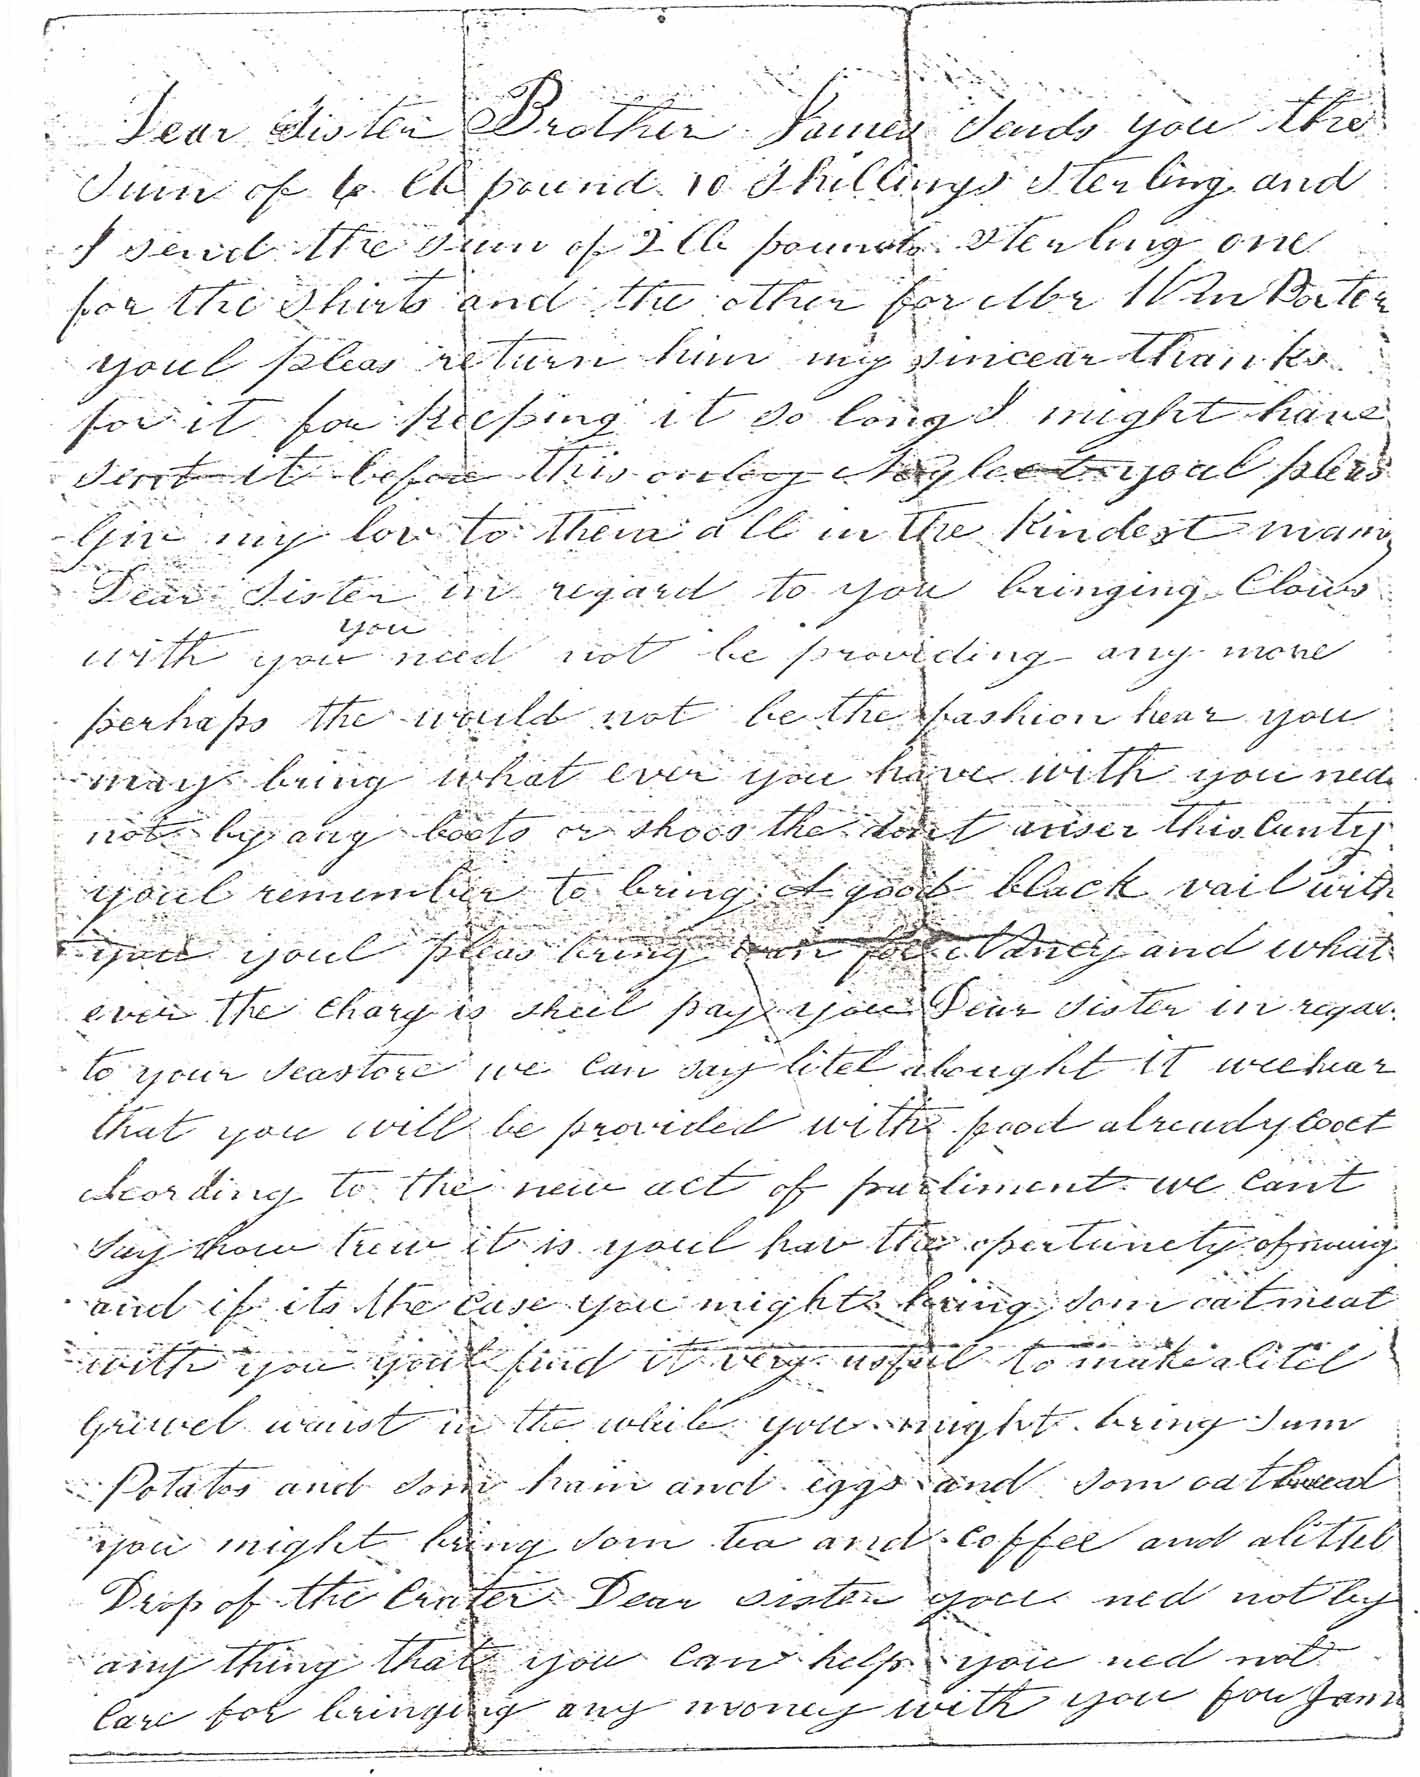 Dear Sister Brother James Sends you the
Sum of 6 lb pound 10 Shillings Sterling and
I send the sum of 2 lb pounds Sterling one
for the Shirts and the other for Mr Wm Porter
youl pleas return him my sincear thanks
for it for keeping it so long I might have
sent it before this onley Neglect youl pleas
Giv my lov to them all in the Kindest
Dear Sister in regard to you bringing Clows
you
with you need not be providing any more
perhaps the would not be the fashion hear you
may bring what ever you have with you ned
not by any boots or shoos the dont anser this Cunty
youl remember to bring A good black vail with
you youl pleas bring wan for Nancy and what
ever the charg is sheel pay you Dear Sister in regar
to your seastore we can say litel abought it wee hear
that you will be provided with food already Coect
Acording to the new act of parliment we cant
Say how trew it is youl hav the opertunety of
and if its the case you might bring som oatmeal
with you youl find it very usful to make a litel
Gruel wanst in the while you might bring sum
Potatos and som ham and eggs and som oat bread
you might bring som tea and coffee and a littel
Drop of the Crater Dear sister you ned not by
any thing that you can help you ned not
Care for bringing any money with you for Jam